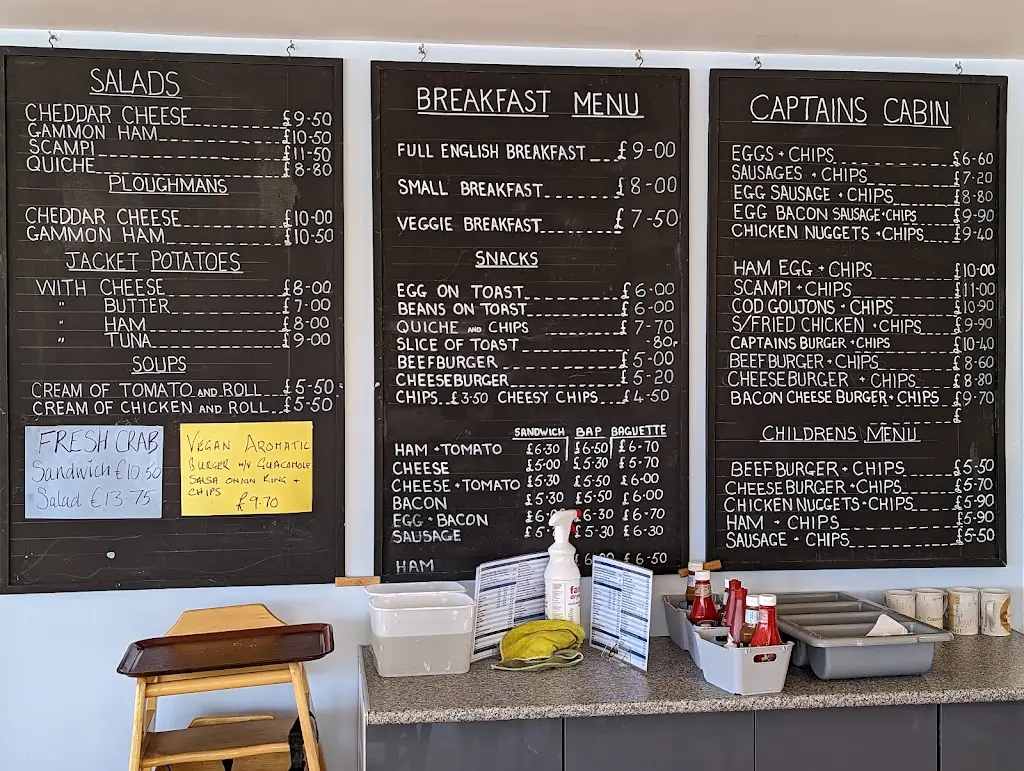 SALADS
CHEDDAR CHEESE £9-50
GAMMON HAM £10-50
SCAMPI £11-50
QUICHE £8-80
PLOUGHMANS
CHEDDAR CHEESE £10-00
GAMMON HAM £10-50
JACKET POTATOES
WITH CHEESE £8-00
" BUTTER £7-00
" HAM £8-00
" TUNA £9-00
SOUPS
CREAM OF TOMATO AND ROLL £5-50
CREAM OF CHICKEN AND ROLL £5-50
FRESH CRAB
Sandwich £10.50
Salad £13.75
VEGAN AROMATIC
BURGER W/V GUACAMOLE
SALSA ONION RING +
CHIPS £9.70
BREAKFAST MENU
FULL ENGLISH BREAKFAST £9-00
SMALL BREAKFAST £8-00
VEGGIE BREAKFAST £7-50
SNACKS
EGG ON TOAST £6-00
BEANS ON TOAST £6-00
QUICHE AND CHIPS £7-70
SLICE OF TOAST -80P
BEEFBURGER £5-00
CHEESEBURGER £5-20
CHIPS £3-50 CHEESY CHIPS £4-50
SANDWICH BAP BAGUETTE
HAM + TOMATO £6-30 £6-50 £6-70
CHEESE £5-00 £5-30 £5-70
CHEESE + TOMATO £5-30 £5-50 £6-00
BACON £5-30 £5-50 £6-00
EGG + BACON £6-30 £6-70
SAUSAGE £5-30 £6-30
HAM £6-50
CAPTAINS CABIN
EGGS + CHIPS £6-60
SAUSAGES + CHIPS £7-20
EGG SAUSAGE + CHIPS £8-80
EGG BACON SAUSAGE + CHIPS £9-90
CHICKEN NUGGETS + CHIPS £9-40
HAM EGG + CHIPS £10-00
SCAMPI + CHIPS £11-00
COD GOUJONS + CHIPS £10-90
S/FRIED CHICKEN + CHIPS £9-90
CAPTAINS BURGER + CHIPS £10-40
BEEFBURGER + CHIPS £8-60
CHEESEBURGER + CHIPS £8-80
BACON CHEESE BURGER + CHIPS £9-70
£
CHILDRENS MENU
BEEFBURGER + CHIPS £5-50
CHEESEBURGER + CHIPS £5-70
CHICKEN NUGGETS + CHIPS £5-90
HAM + CHIPS £5-90
SAUSAGE + CHIPS £5-50